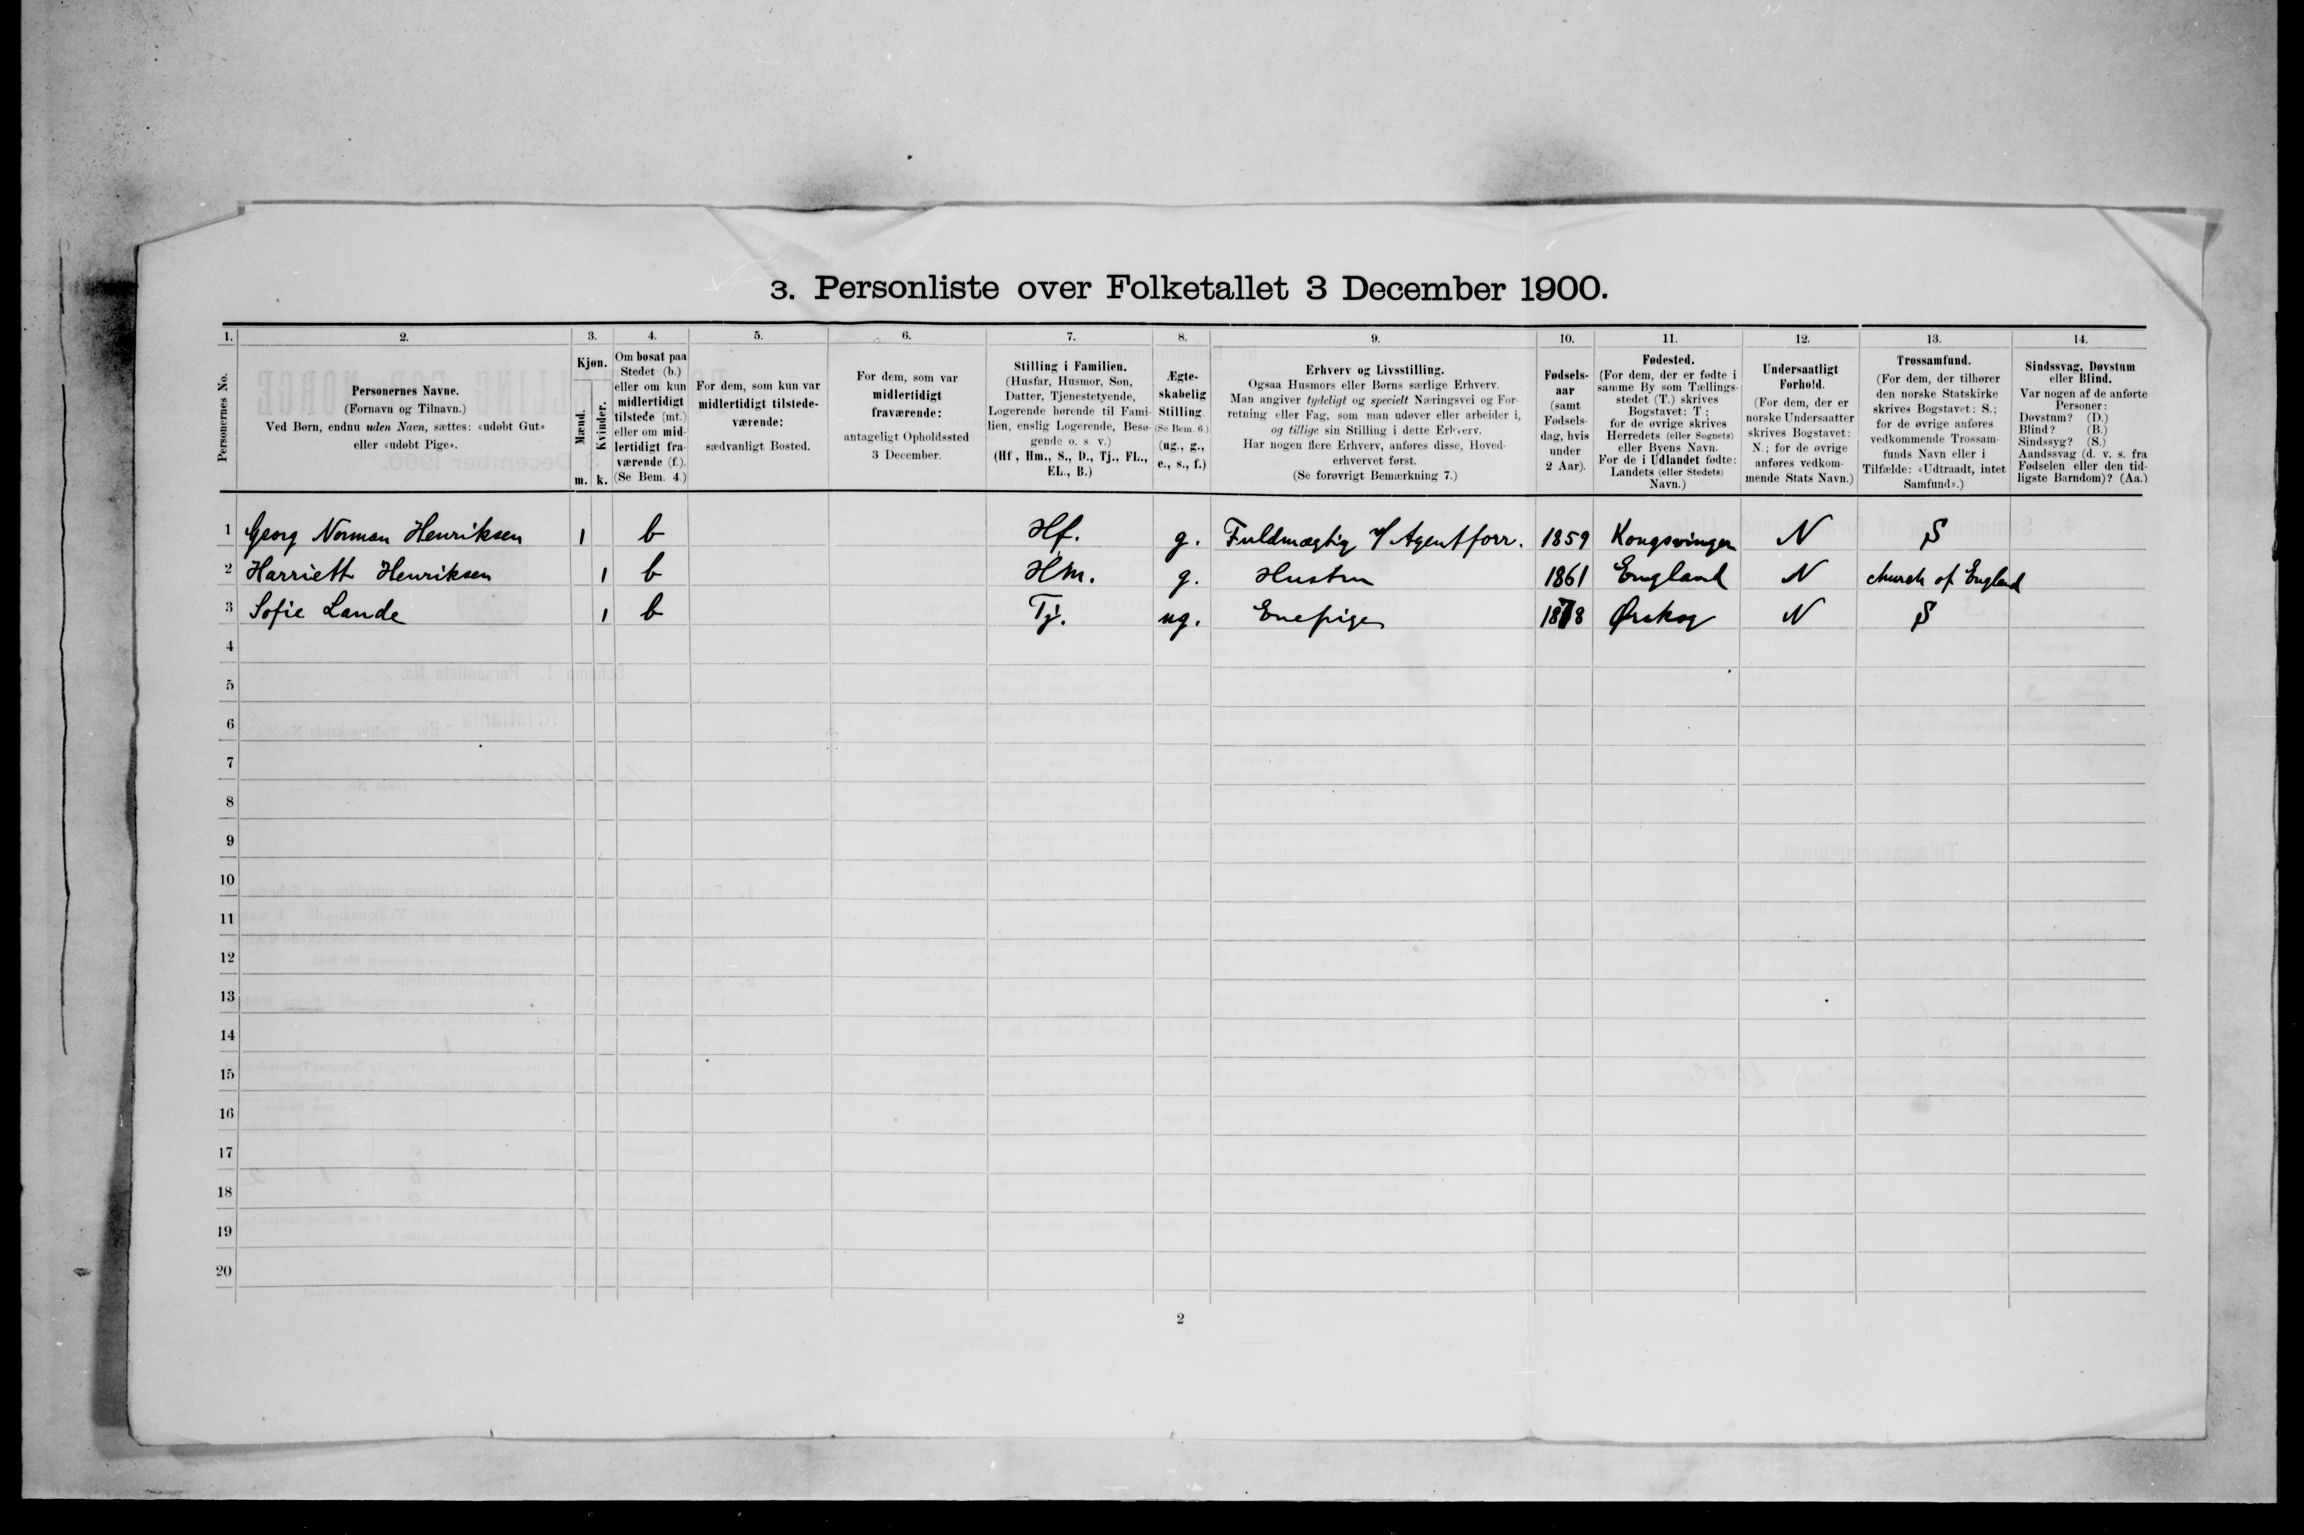 3. Personliste over Folketallet 3 December 1900.
1. 2. 3. 4. 5. 6. 7. 8. 9. 10. 11. 12. 13. 14.
Personernes No.
Personernes Navne.
(Fornavn og Tilnavn.)
Ved Børn, endnu uden Navn, sættes: «udøbt Gut»
eller «udøbt Pige».
Kjøn.
Mænd.
Kvinder.
m. k.
Om bosat paa
Stedet (b.)
eller om kun
midlertidigt
tilstede (mt.)
eller om mid-
lertidigt fra-
værende (f.).
(Se Bem. 4.)
For dem, som kun var
midlertidigt tilstede-
værende:
sædvanligt Bosted.
For dem, som var
midlertidigt
fraværende:
antageligt Opholdssted
3 December.
Stilling i Familien.
(Husfar, Husmor, Søn,
Datter, Tjenestetyende,
Logerende hørende til Fami-
lien, enslig Logerende, Besø-
gende o. s v.)
(Hf, Hm., S., D., Tj., FL.,
EL., B.)
Ægte-
skabelig
Stilling.
(Se Bem. 6.)
(ug., g.,
e., s., f.)
Erhverv og Livsstilling.
Ogsaa Husmors eller Børns særlige Erhverv.
Man angiver tydeligt og specielt Næringsvei og For-
retning eller Fag, som man udøver eller arbeider i,
og tillige sin Stilling i dette Erhverv.
Har nogen flere Erhverv, anføres disse, Hoved-
erhvervet først.
(Se forøvrigt Bemærkning 7.)
Fødsels-
aar
(samt
Fødsels-
dag, hvis
under
2 Aar).
Fødested.
(For dem, der er fødte i
samme By som Tællings-
stedet (T.) skrives
Bogstavet: T;
for de øvrige skrives
Herredets (eller Sognets)
eller Byens Navn.
For de i Udlandet fødte:
Landets (eller Stedets)
Navn.)
Undersaatligt
Forhold.
(For dem, der er
norske Undersaatter
skrives Bogstavet:
N.; for de øvrige
anføres vedkom-
mende Stats Navn.)
Trossamfund.
(For dem, der tilhører
den norske Statskirke
skrives Bogstavet: S.;
for de øvrige anføres
vedkommende Trossam-
funds Navn eller i
Tilfælde: «Udtraadt, intet
Samfund».)
Sindssvag, Døvstum
eller Blind.
Var nogen af de anførte
Personer:
Døvstum? (D.)
Blind? (B.)
Sindssyg? (S.)
Aandssvag (d. v. s. fra
Fødselen eller den tid-
ligste Barndom)? (Aa.)
1 Georg Norman Henriksen 1 b Hf. g. Fuldmægtig v/ Agentforr. 1859 Kongsvinger N S
2 Harriett Henriksen 1 b Hm. g. Hustru 1861 England N church of England
3 Sofie Lande 1 b Tj. ug. Enepige 1878 Ørskog N S
4
5
6
7
8
9
10
11
12
13
14
15
16
17
18
19
20
2